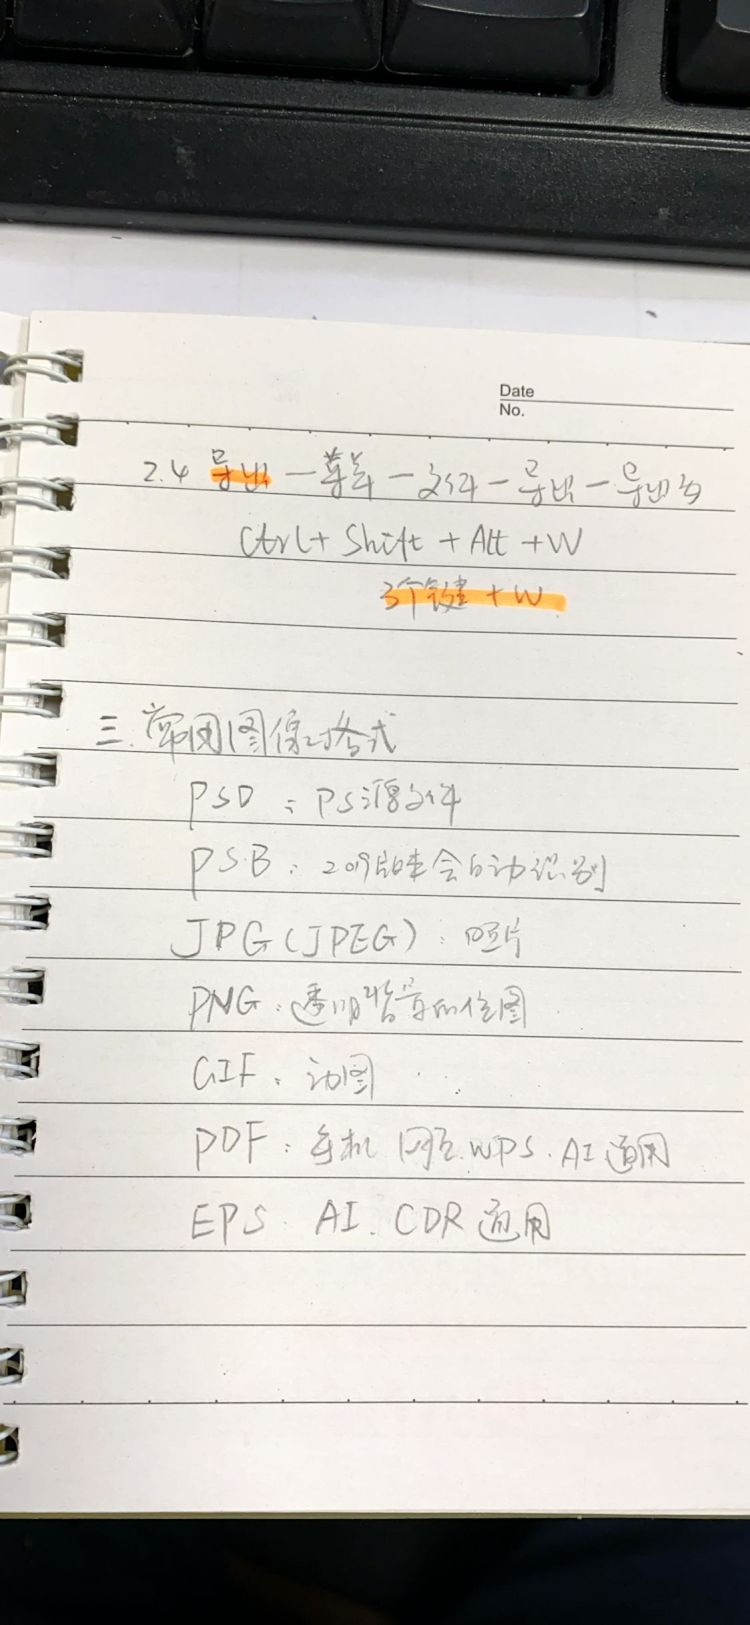 Date
No.
2.4 导出 — 菜单 — 文件 — 导出 — 导出为
Ctrl + Shift + Alt + W
3个键 + W
三. 常用图像格式
PSD : PS源文件
PSB : 会自动识别
JPG (JPEG) : 照片
PNG : 透明背景的位图
GIF : 动图
PDF : 手机 网页. WPS. AI 通用
EPS AI. CDR 通用